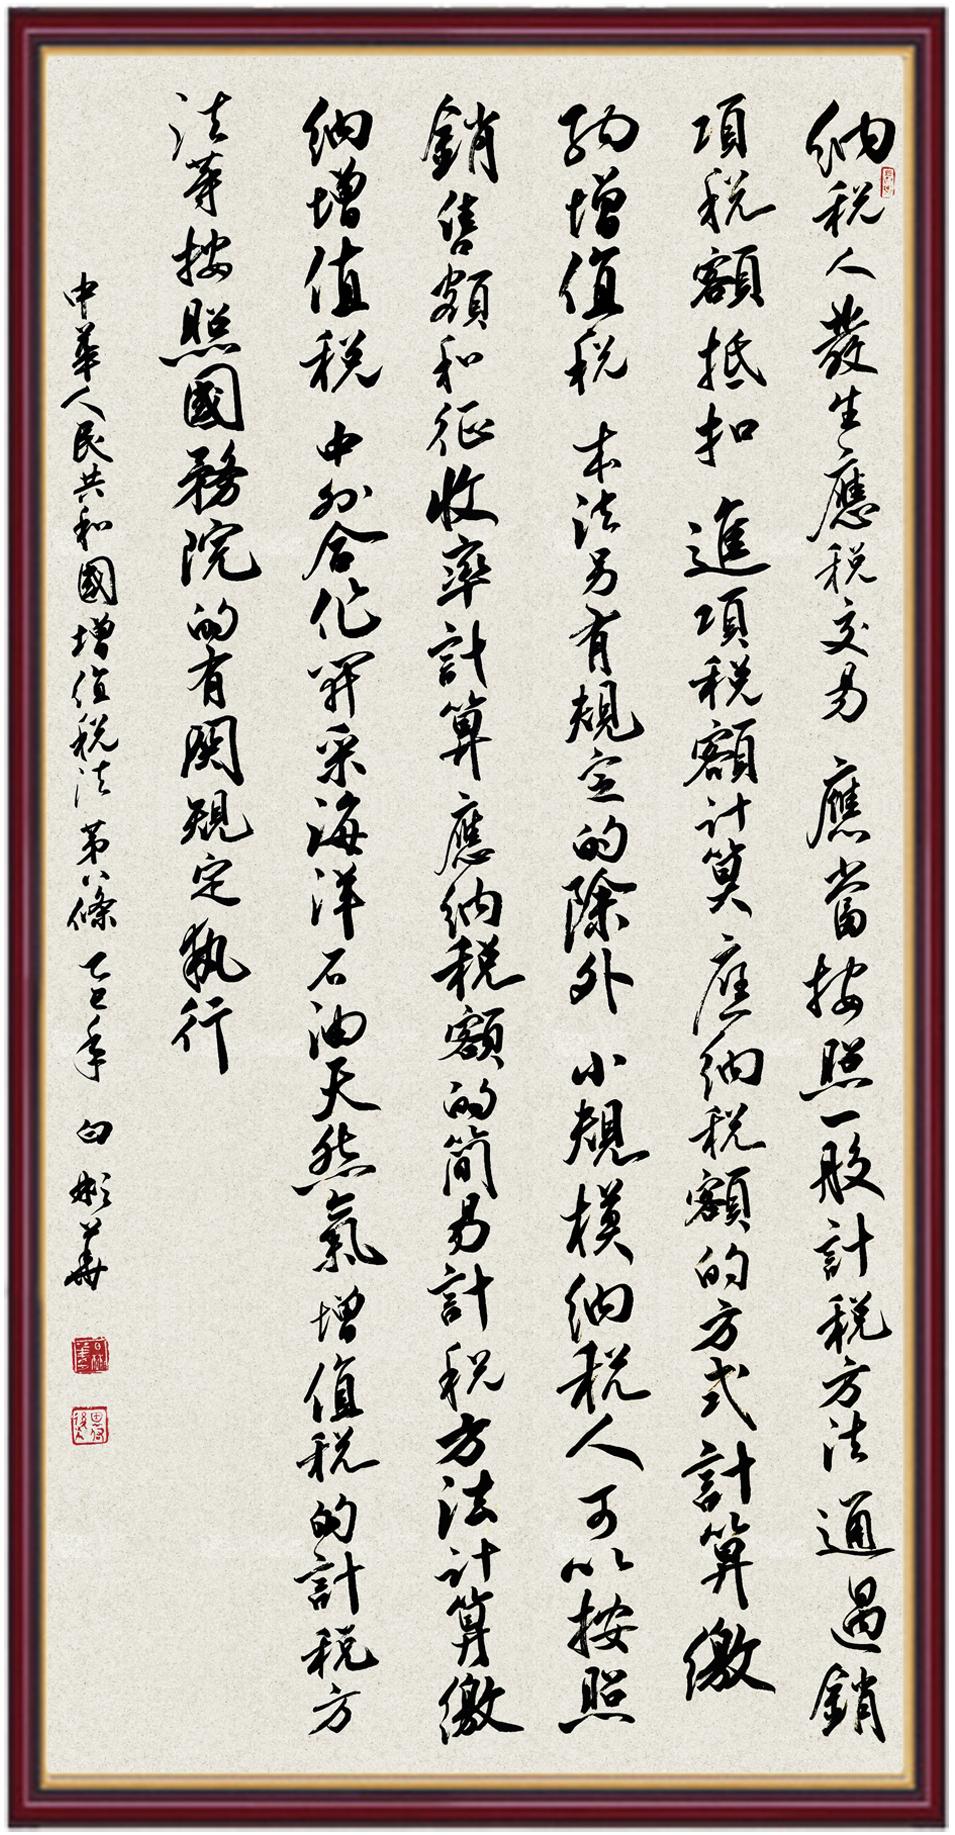 納税人發生應税交易應當按照一般計税方法通過銷
項税額抵扣進項税額計算應納税額的方式計算繳
納增值税本法另有規定的除外小規模納税人可以按照
銷售額和征收率計算應納税額的簡易計税方法計算繳
納增值税中外合作開采海洋石油天然氣增值税的計税方
法等按照國務院的有関規定執行
中華人民共和國增值税法第八條乙巳年白彬華